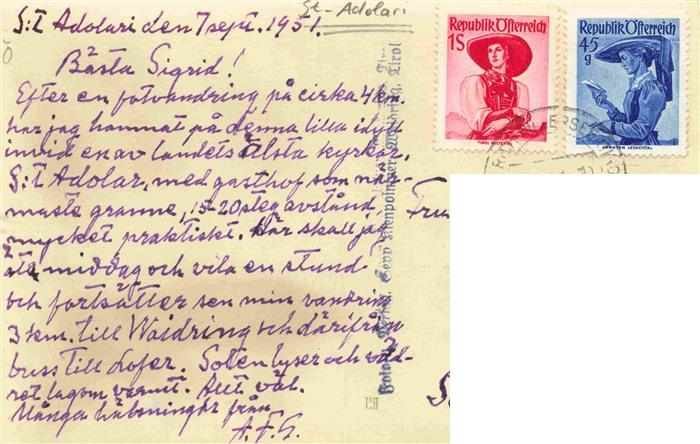 St-Adolari
S:t Adolari den 7 sept. 1951.
Bästa Sigrid!
Efter en fotvandring på cirka 4 km.
har jag hamnat på denna lilla idyll
invid en av landets älsta kyrkor,
S:t Adolar, med gasthof som när-
maste granne, 15-20 steg avstånd
mycket praktiskt. Här skall jag
äta middag och vila en stund
och fortsätter sen min vandring
3 km. till Waidring och därifrån
buss till Lofer. Solen lyser och väd-
ret lagom varmt. Allt väl.
Många hälsningar från
A.F.G.
Republik Österreich
1S
TIROL PUSTERTAL
Republik Österreich
45 g
KÄRNTEN LESACHTAL
Tirol